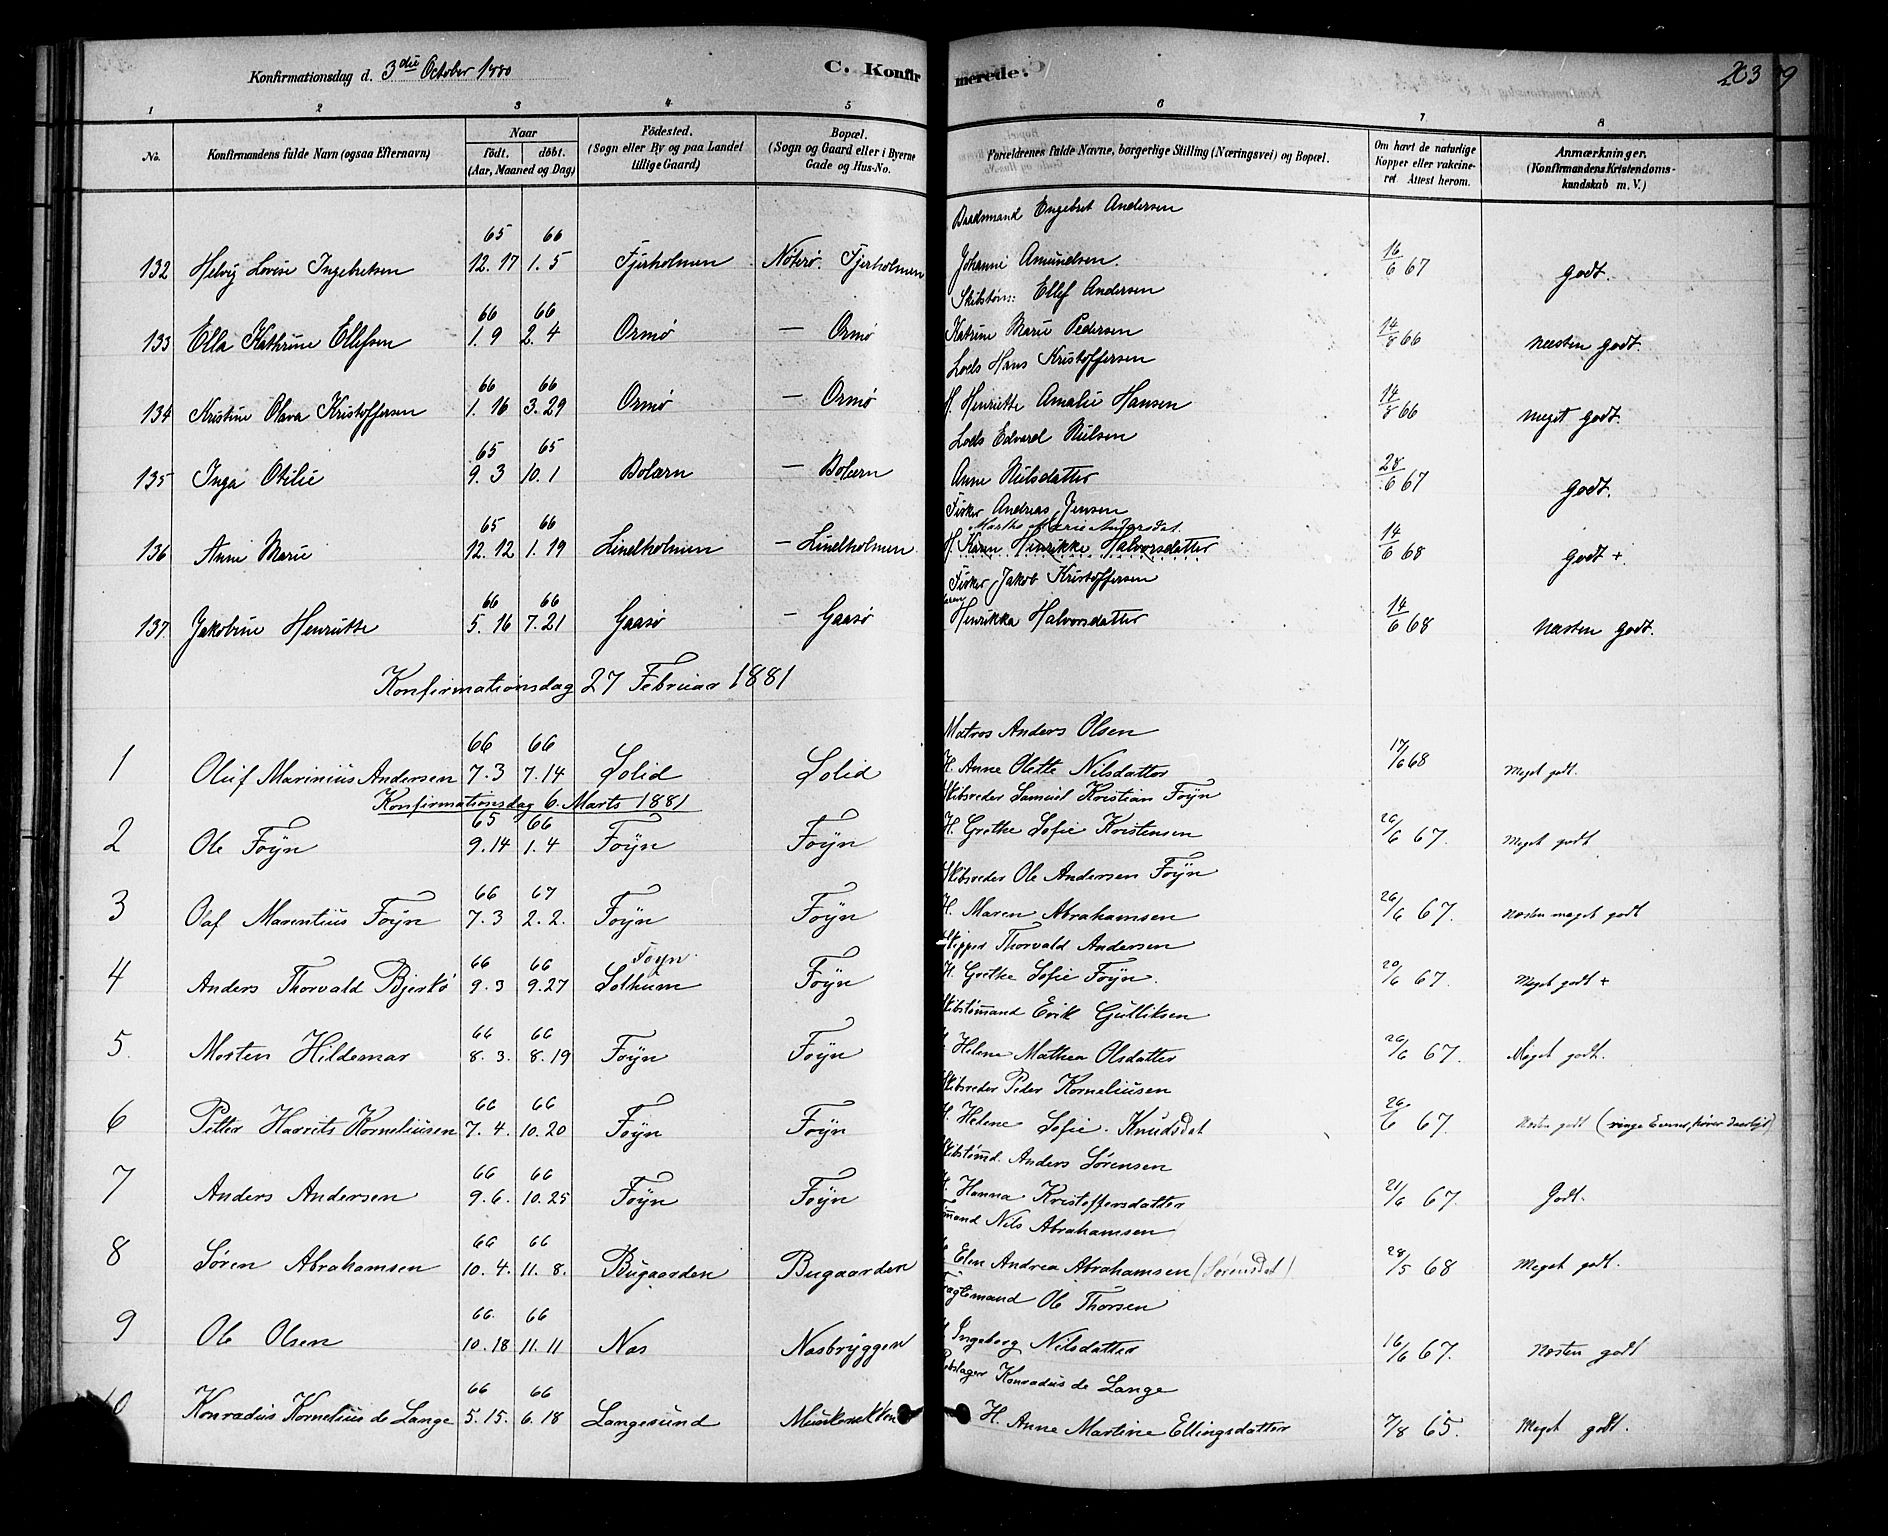 Konfirmationsdag d. 3die October 1880
C. Konfirmerede.
1 2 3 4 5 6 7 8
No.
Konfirmandens fulde Navn (ogsaa Efternavn)
Naar
födt. döbt.
(Aar, Maaned og Dag)
Födested.
(Sogn eller By og paa Landet
tillige Gaard)
Bopæl.
(Sogn og Gaard eller i Byerne
Gade og Hus-No.
Forældrenes fulde Navne, borgerlige Stilling (Næringsvei) og Bopæl.
Om havt de naturlige
Kopper eller vakcine-
ret Attest herom.
Anmærkninger.
(Konfirmandens Kristendoms-
kundskab m. V.)
65 66 Baadsmand Engebret Andersen
132 Helvig Lovise Ingebretsen 12. 17 1. 5 Fjerholmen Nøterø. Fjerholmen Johanne Amundsen. 16/6 67 godt.
66 66 Skibstøm: Ellef Andersen
133 Ella Kathrine Ellefsen 1. 9 2. 4 Ormø — Ormø Katrine Marie Pedersen 14/8 66 næsten godt.
66 66 Lods Hans Kristoffersen
134 Kristine Olava Kristoffersen 1. 16 3. 29 Ormø — Ormø H. Henriette Amalie Hansen 14/8 66 meget godt.
65 65 Lods Edvard Nilsen
135 Inga Otilie 9. 3 10. 1 Bolærn — Bolærn Anne Nilsdatter 28/6 67 godt.
65 66 Fisker Andreas Jensen
Marthe Marie Andersdat.
136 Anne Marie 12. 12 1. 19 Lindholmen — Lindholmen H. Karen Henrikke Halvorsdatter 14/6 68 godt +
66 66 Fisker Jakob Kristoffersen
137 Jakobine Henriette 5. 16 7. 21 Gaasø — Gaasø Karen Henrikka Halvorsdatter 14/6 68 Næsten godt.
Konfirmationsdag 27 Februar 1881
66 66 Matros Anders Olsen
1 Oluf Marinius Andersen 7. 3 7. 14 Solid Solid H. Anne Olette Nilsdatter 17/6 68 Meget godt.
Konfirmationsdag 6. Marts 1881 Skibsreder Samuel Kristian Foÿn
65 66
2 Ole Foÿn 9. 14 1. 4 Foÿn Foÿn H. Grethe Sofie Kristensen 26/6 67. Meget godt
66 67 Skibsreder Ole Andersen Foÿn
3 Olaf Marentius Foÿn 7. 3 2. 2. Foÿn Foÿn H. Maren Abrahamsen 26/6 67. Næsten meget godt
66 66 Foyn. Skipper Thorvald Andersen
4 Anders Thorvald Bjerkø 9. 3 9. 27 Solhum Foÿn H. Grethe Sofie Foÿn. 20/6 67. Meget godt +
66 66 Skibstømmand Erik Gulliksen
5. Morten Hildemar 8. 3. 8. 19 Foÿn Foÿn H. Helene Mathea Olsdatter 26/6 67. Meget godt.
66 66 Skibsreder Peder Korneliusen
6 Petter Harrits Korneliusen 7. 4. 10. 20 Foÿn Foÿn H. Helene Sofie. Knudsdat 26/6 67. Næsten godt (ringe Evner, hører daarligt)
66 66 Skibstømd. Anders Sørensen
7 Anders Andersen 9. 6. 10. 25 Foÿn Foÿn H. Hanna Kristoffersdatter 21/6 67. Godt.
66 66 Nils Abrahamsen
8 Søren Abrahamsen 10. 4. 11. 8. Bugaarden Bugaarden Elen Andrea Abrahamsen (Sørensdat) 28/5 68 Meget godt.
66. 66 Fragtemand Ole Thorsen
9 Ole Olsen 10. 18 11. 11 Nes Nesbryggen H. Ingeborg Nilsdatter 16/6 67. Næsten godt
66 66 Konradus de Lange
10 Konradus Kornelius de Lange 5. 15. 6. 18 Langesund H. Anne Martine Ellingsdatter 7/8 65. Meget godt.